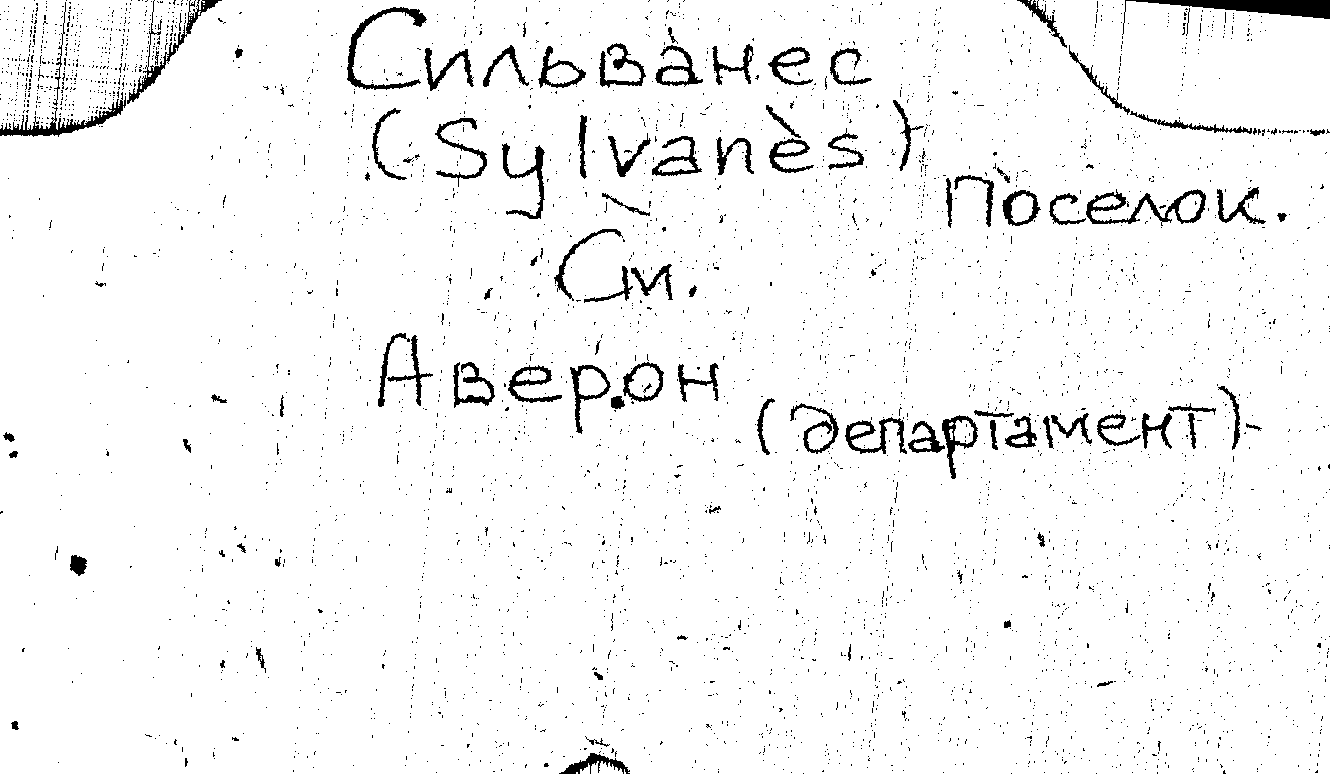 Сильванес
(Sylvanès)
Поселок.
См.
Аверон
(департамент)